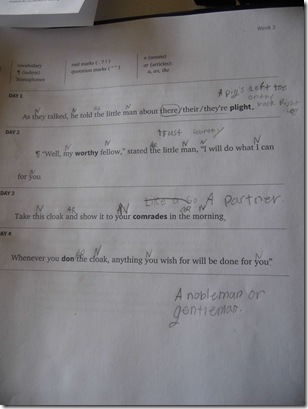 Week 3
vocabulary
¶ (indent)
homophones
end marks (. ? !)
question marks (" ")
n (nouns)
ar (articles):
a, an, the
DAY 1
N N AR N
As they talked, he told the little man about there/their/they're plight.
DAY 2
trust worthy
N N AR N N N
¶ "Well, my worthy fellow," stated the little man, "I will do what I can
N
for you
DAY 3
Like a A partner
N AR N N AR N
Take this cloak and show it to your comrades in the morning,
DAY 4
N AR N N N
Whenever you don the cloak, anything you wish for will be done for you"
A nobleman or
gentleman.